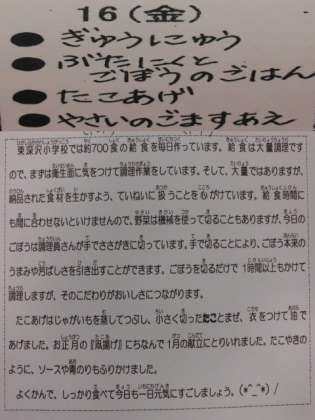 16(金)
●ぎゅうにゅう
●ぶたにくと
ごぼうのごはん
●たこあげ
●やさいのごますあえ
東深沢小学校では約700食の給食を毎日作っています。給食は大量調理です
ので、まずは衛生面に気をつけて調理作業をしています。そして、大量ではありますが、
納品された食材を生かすよう、ていねいに扱うことを心がけています。給食時間に
も間に合わせないといけませんので、野菜は機械を使って切ることもありますが、今日の
ごぼうは調理員さんが手でささがきに切っています。手で切ることにより、ごぼう本来の
うまみや香ばしさを引き出すことができます。ごぼうを切るだけで1時間以上もかけて
調理しますが、そのこだわりがおいしさにつながります。
たこあげはじゃがいもを蒸してつぶし、小さく切ったたことまぜ、衣をつけて油で
あげました。お正月の『凧揚げ』にちなんで1月の献立にとりいれました。たこやきの
ように、ソースや青のりもふりかけました。
よくかんで、しっかり食べて今日も一日元気にすごしましょう。(*^_^*)/